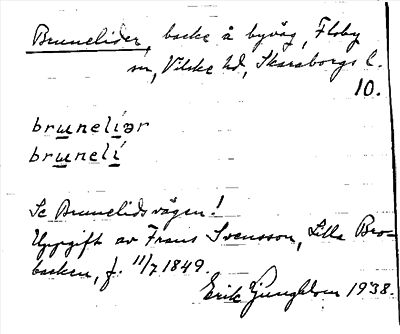 Brunelider, backe å byväg, Floby
sn, Vilske hd, Skaraborgs l.
10.
brunelíər
brunelí
Se Brunelidsvägen!
Uppgift av Frans Svensson, Lilla Bro-
backen, f. 11/7 1849.
Erik Ljungblom 1938.